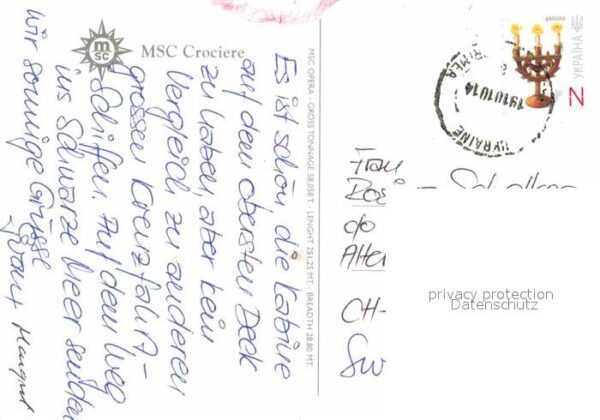 MSC Crociere
Es ist schön die Kabine
auf dem obersten Deck
zu haben aber kein
Vergleich zu anderen
grossen Kreuzfahrt-
Schiffen. Auf dem Weg
ins Schwarze Meer senden
wir sonnige Grüsse
Margrit
MSC OPERA - GROSS TONNAGE 58.058 T. - LENGHT 251,25 MT. - BREADTH 28,80 MT.
УКРАЇНА
N
UKRAINE
19 10 10 14
Frau
c/o
CH-
privacy protection
Datenschutz